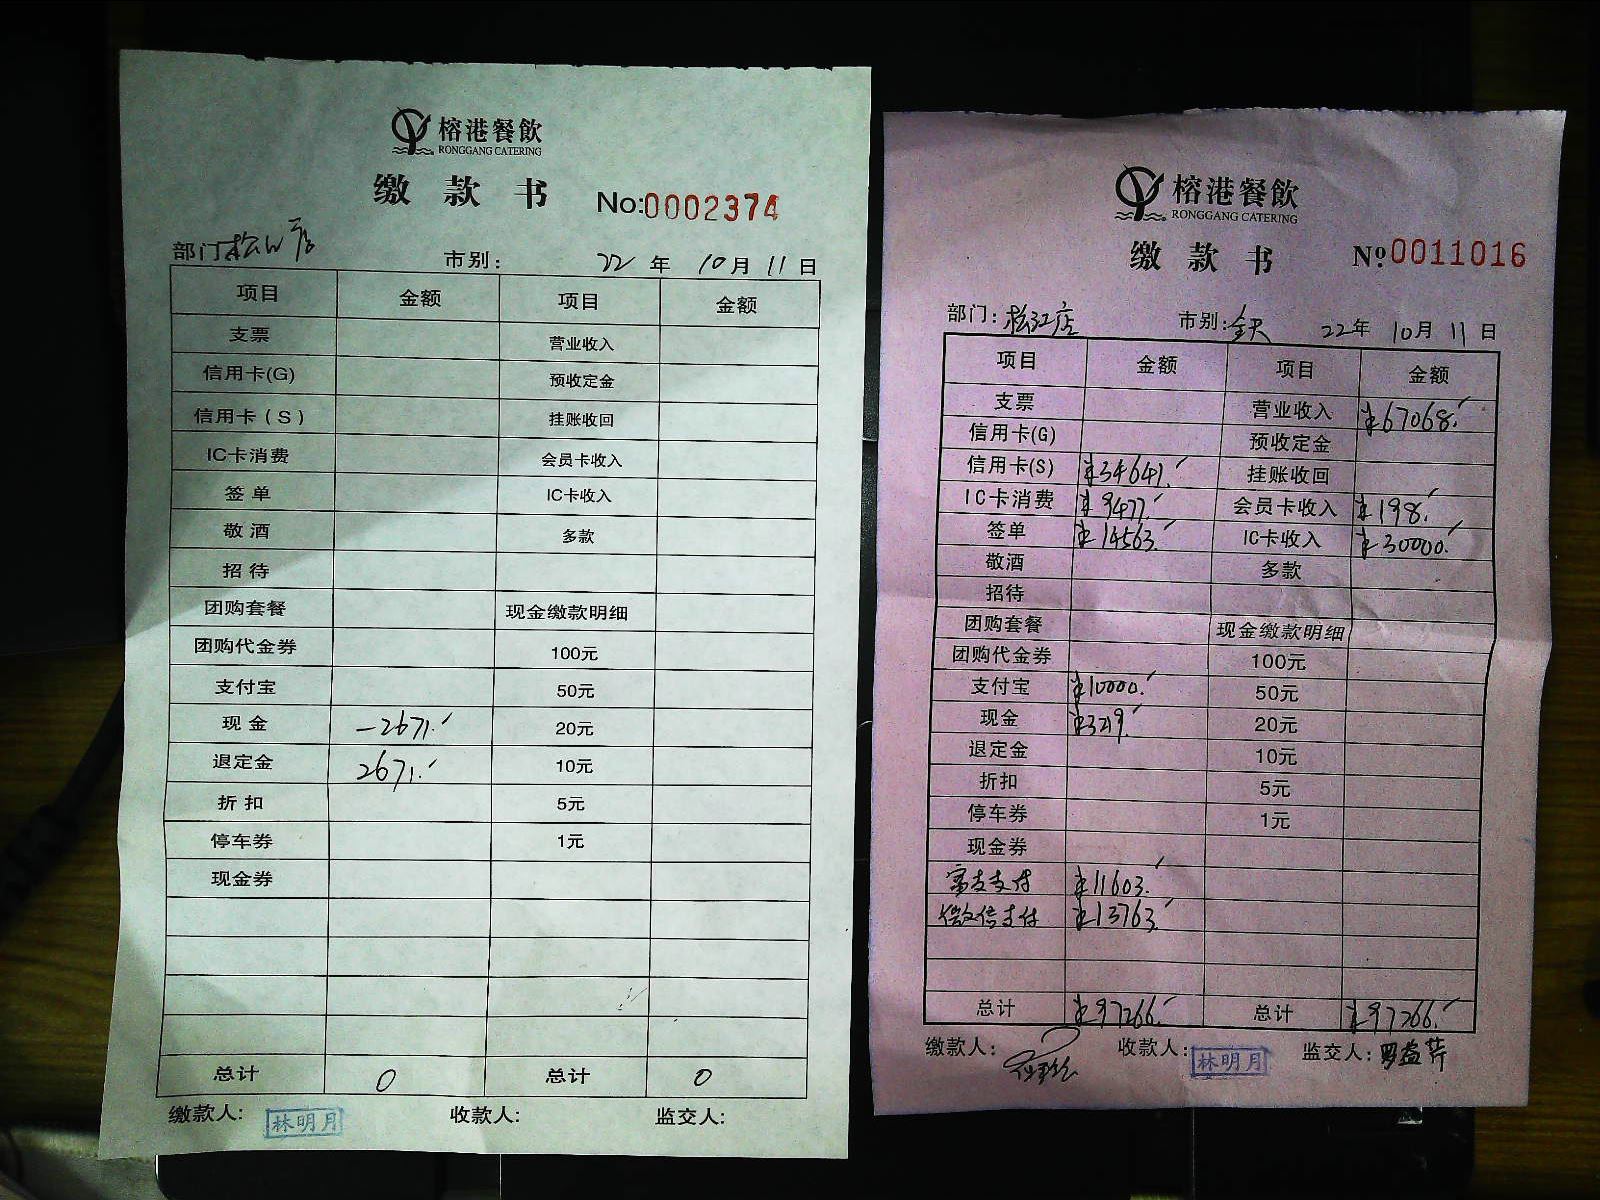 榕港餐飲
RONGGANG CATERING
缴款书 No:0002374
部门 松江店 市别: 22年 10月 11日
项目 金额 项目 金额
支票 营业收入
信用卡(G) 预收定金
信用卡(S) 挂账收回
IC卡消费 会员卡收入
签单 IC卡收入
敬酒 多款
招待
团购套餐 现金缴款明细
团购代金券 100元
支付宝 50元
现金 -2671.- 20元
退定金 2671.- 10元
折扣 5元
停车券 1元
现金券
总计 0 总计 0
缴款人: 林明月 收款人: 监交人:
榕港餐飲
RONGGANG CATERING
缴款书 Nº:0011016
部门: 松江店 市别: 全天 22年 10月 11日
项目 金额 项目 金额
支票 营业收入 ¥67068.-
信用卡(G) 预收定金
信用卡(S) ¥34641.- 挂账收回
IC卡消费 ¥9477.- 会员卡收入 ¥198.-
签单 ¥14563.- IC卡收入 ¥30000.-
敬酒 多款
招待
团购套餐 现金缴款明细
团购代金券 100元
支付宝 ¥10000.- 50元
现金 ¥3219.- 20元
退定金 10元
折扣 5元
停车券 1元
现金券
支付 ¥11603.-
微信支付 ¥13763.-
总计 ¥97266.- 总计 ¥97266.-
缴款人: 收款人: 林明月 监交人: 罗益芹